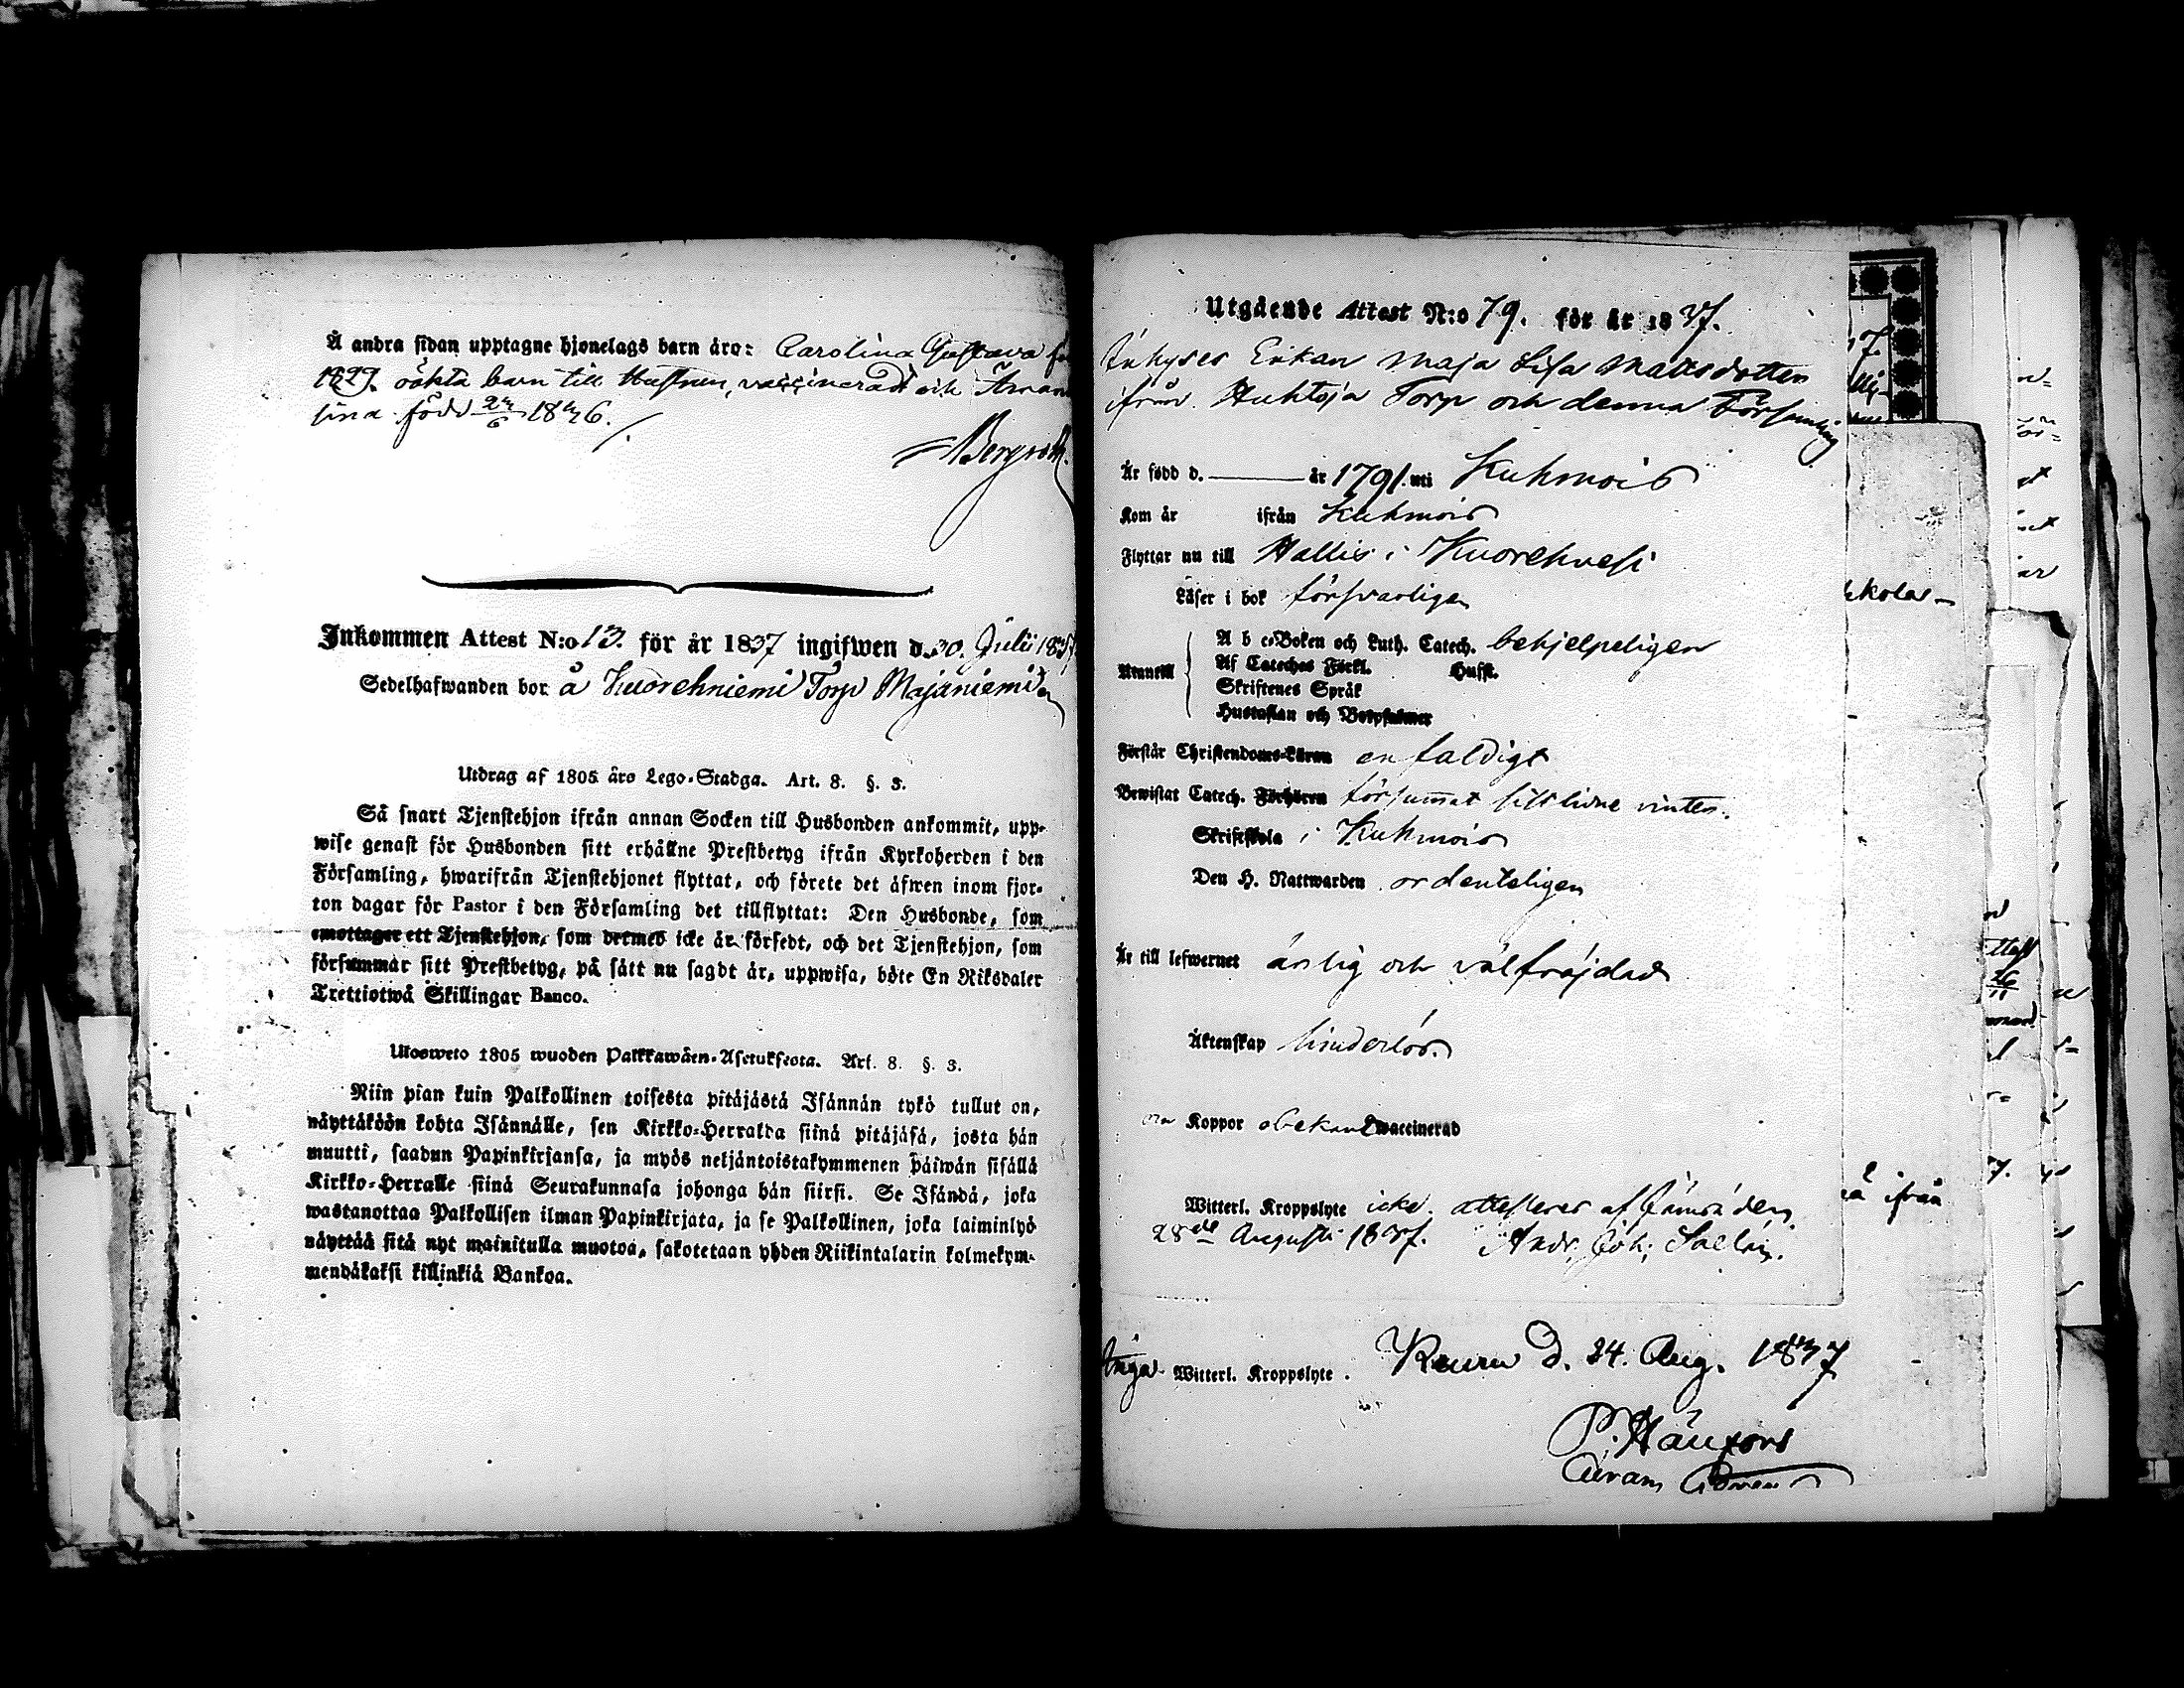 Å andra sidan upptagne hjonelags barn äro: Carolina Gustava
1829. oäkta barn till Hustrun, vaccinerad och Aman
lina född 2/6 1836.
Bergroth
Inkommen Attest N:o 13. för år 1837 ingifwen d. 30. Julii 1837
Sedelhafwanden bor å Kuorehniemi Torp Majaniemi
Utdrag af 1805 års Lego-Stadga. Art. 8. §. 3.
Så snart Tjenstehjon ifrån annan Socken till Husbonden ankommit, upp-
wise genast för Husbonden sitt erhållne Prestbetyg ifrån Kyrkoherden i den
Församling, hwarifrån Tjenstehjonet flyttat, och förete det äfwen inom fjor-
ton dagar för Pastor i den Församling det tillflyttat: Den Husbonde, som
emottager ett Tjenstehjon, som dermed icke är försedt, och det Tjenstehjon, som
försummar sitt Prestbetyg, på sätt nu sagdt är, uppwisa, böte En Riksdaler
Trettiotwå Skillingar Banco.
Ulosweto 1805 wuoden Palkkawäen-Asetuksesta. Art. 8. §. 3.
Niin pian kuin Palkollinen toisesta pitäjästä Isännän tykö tullut on,
näyttäköön kohta Isännälle, sen Kirkko-Herralda siinä pitäjäsä, josta hän
muutti, saadun Papinkirjansa, ja myös neljäntoistakymmenen päiwän sisällä
Kirkko-Herralle siinä Seurakunnasa johonga hän siirsi. Se Isändä, joka
wastanottaa Palkollisen ilman Papinkirjata, ja se Palkollinen, joka laiminlyö
näyttää sitä nyt mainitulla muotoa, sakotetaan yhden Riikintalarin kolmekym-
mendäkaksi killinkiä Bankoa.
Utgående Attest N:o 79. för år 1837.
Inhyses Enkan Maja Lisa Mattsdotter
ifrån Huhtoja Torp och denna Församling
Är född d. år 1791. uti Kuhmois
Kom år ifrån Kuhmois
Flyttar nu till Hallis i Kuorehvesi
Läser i bok försvarligen
A b c-Boken och Luth. Catech. behjelpeligen
Utantill Af Cateches Förkl. Husst.
Skriftenes Språk
Hustaflan och Botpsalmer
Förstår Christendoms-Läran enfaldigt
Bewistat Catech. Förhören försummat sistlidne vinter.
Skriftskola i Kuhmois
Den H. Nattwarden ordenteligen
Är till lefwernet ärlig och välfräjdad
Äktenskap hinderlös.
om Koppor obekant waccinerad
Witterl. Kroppslyte icke. attesteras af Jämsä den
28de Augusti 1837. Andr. Joh. Sallin.
Inga Witterl. Kroppslyte. Keuru d. 24. Aug. 1837